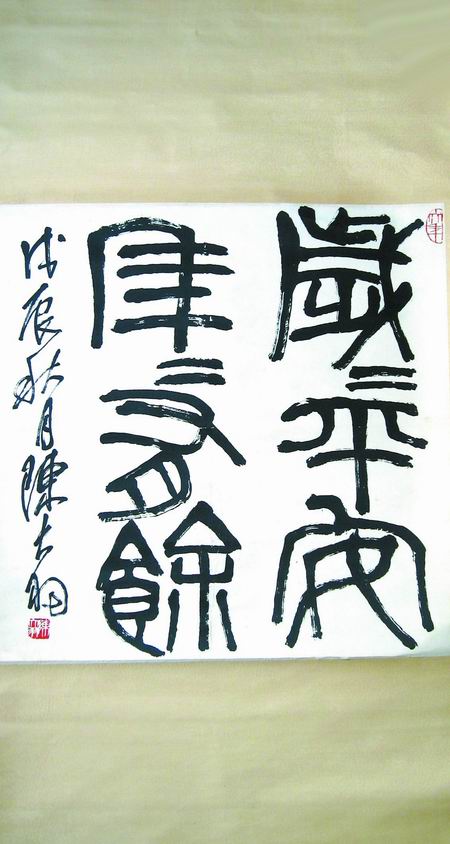 歲々平安
年々有餘
戊辰秋月陳大羽